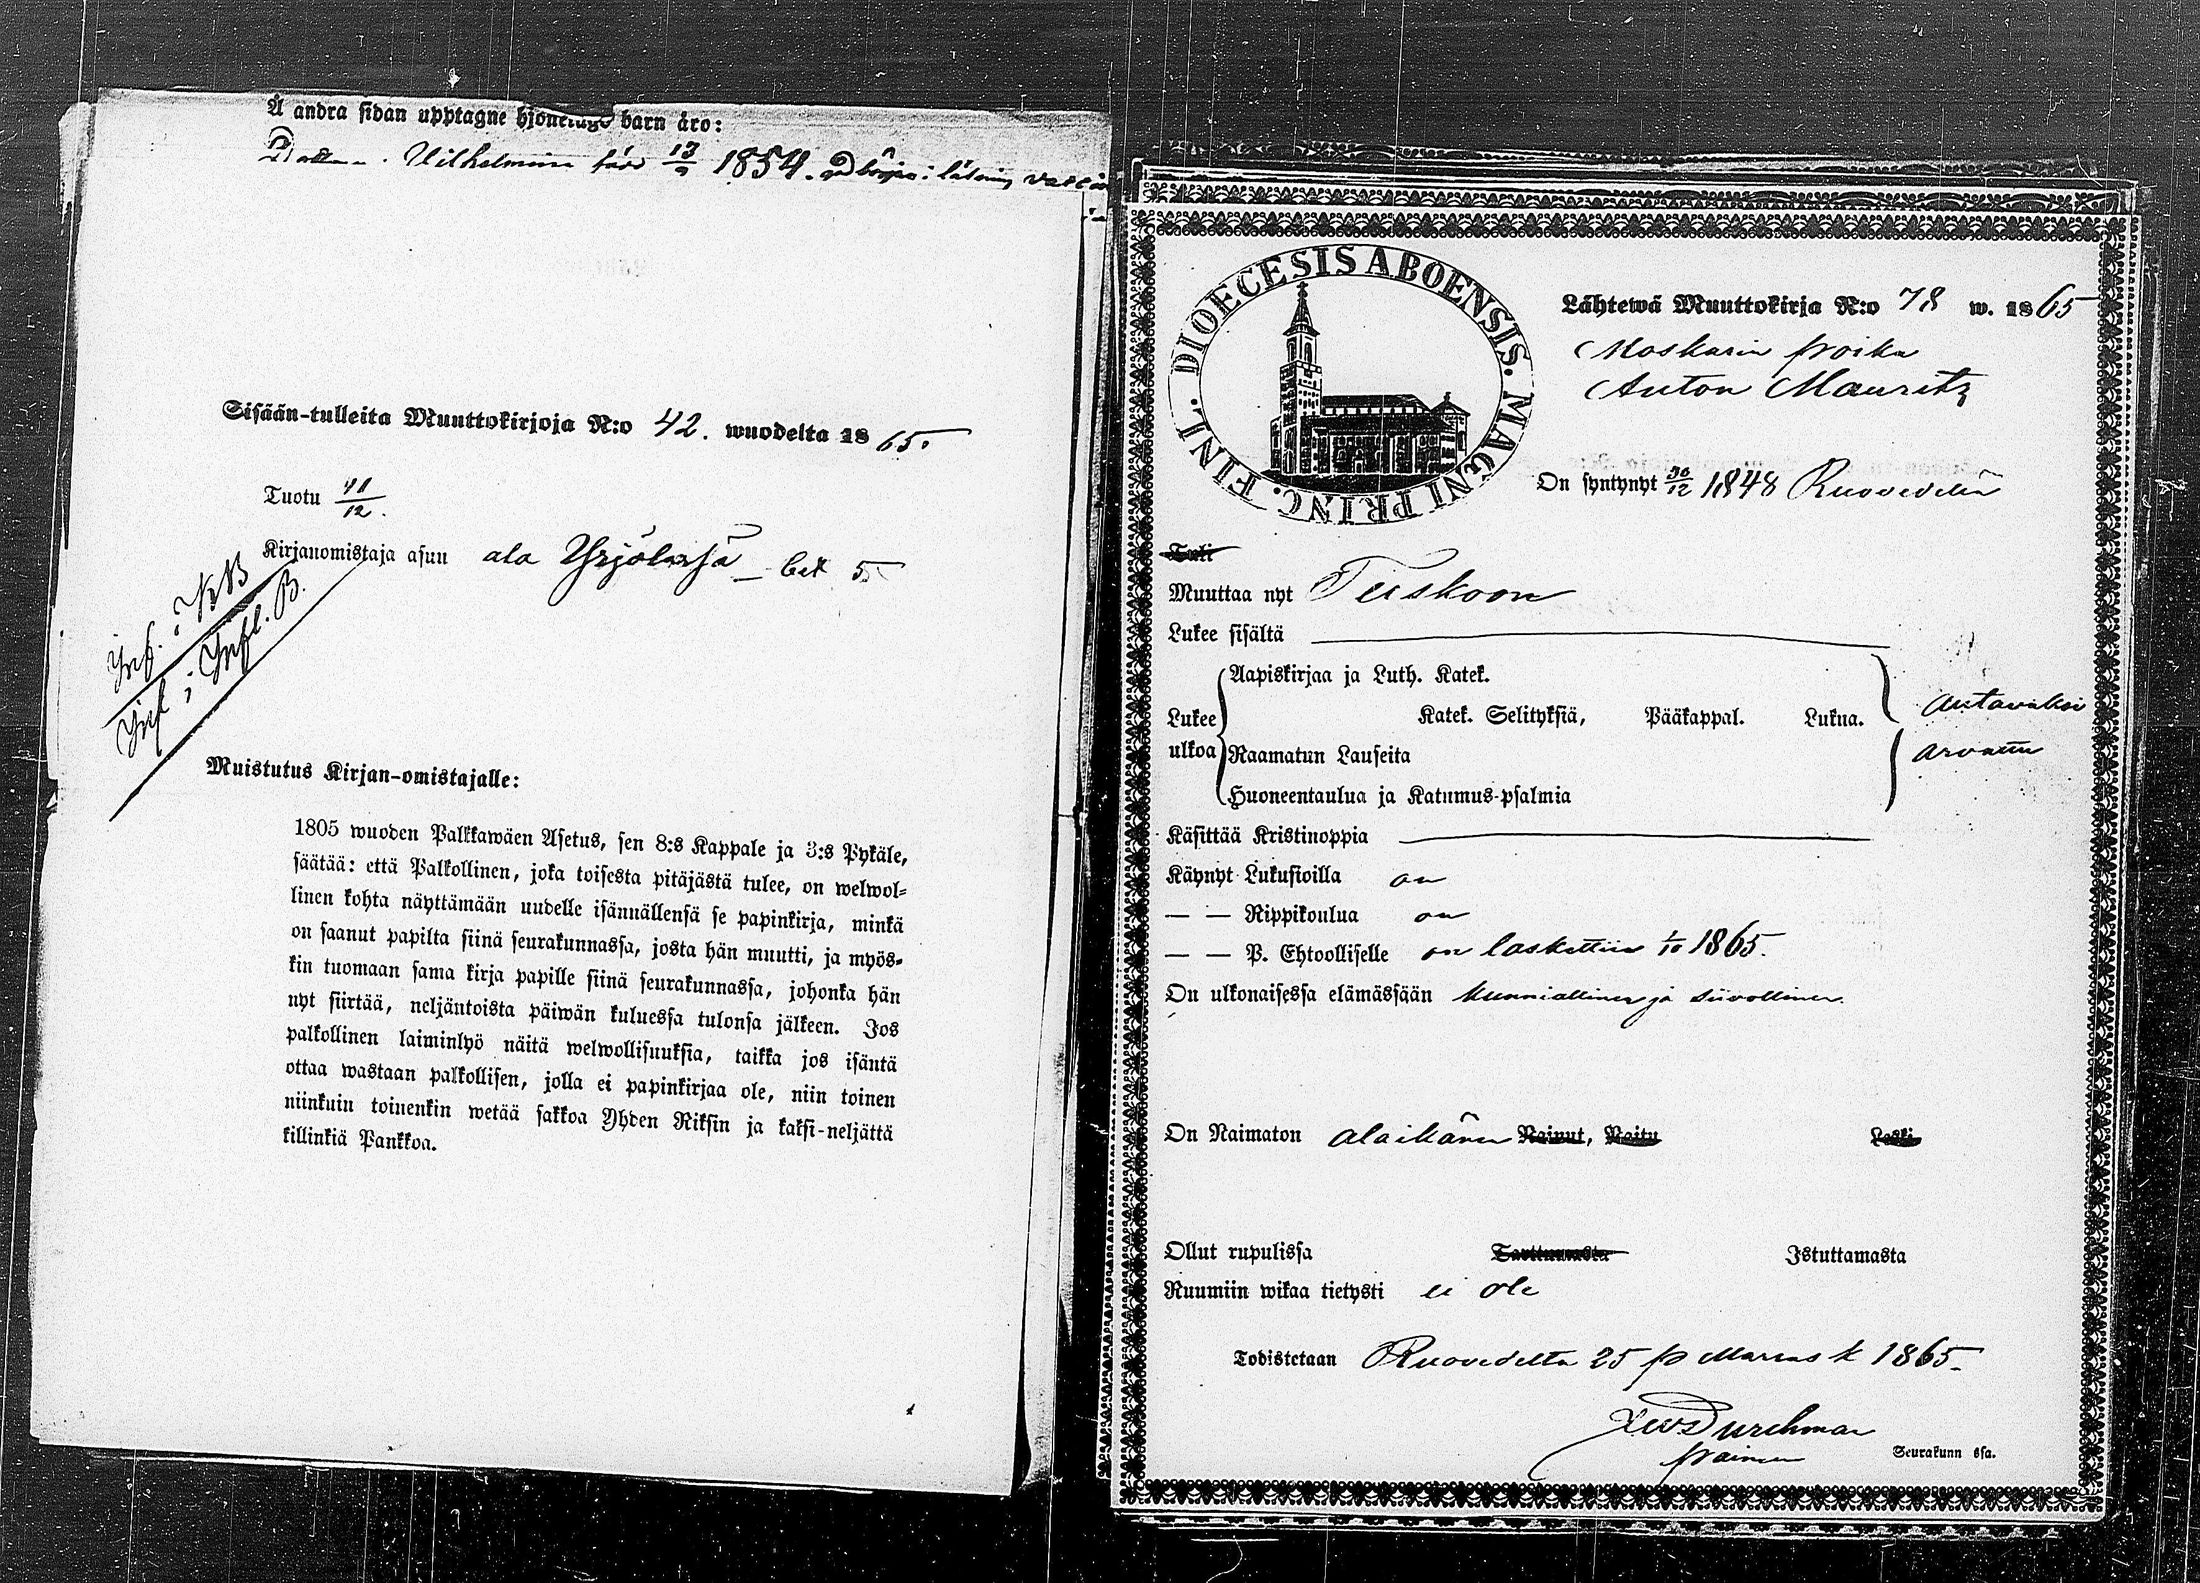 Å andra sidan upptagne hjonelags barn äro:
Wilhelmina född 13/9 1854.
Sisään-tulleita Muuttokirjoja N:o 42. wuodelta 1865.
Tuotu 41/12.
Kirjanomistaja asuu ala Yrjölässä
Inf. i KB
Inf. i Infl. B.
Muistutus Kirjan-omistajalle:
1805 wuoden Palkkawäen Asetus, sen 8:s Kappale ja 3:s Pykäle,
säätää: että Palkollinen, joka toisesta pitäjästä tulee, on welwol-
linen kohta näyttämään uudelle isännällensä se papinkirja, minkä
on saanut papilta siinä seurakunnassa, josta hän muutti, ja myös-
kin tuomaan sama kirja papille siinä seurakunnassa, johonka hän
nyt siirtää, neljäntoista päiwän kuluessa tulonsa jälkeen. Jos
palkollinen laiminlyö näitä welwollisuuksia, taikka jos isäntä
ottaa wastaan palkollisen, jolla ei papinkirjaa ole, niin toinen
niinkuin toinenkin wetää sakkoa Yhden Riksin ja kaksi-neljättä
killinkiä Pankkoa.
DIOECESIS ABOENSIS. MAGNI PRINC. FINL.
Lähtewä Muuttokirja N:o 78 w. 1865
Moskarin poika
Anton Mauritz
On syntynyt 30/12 1848 Ruovedelä
Tuli
Muuttaa nyt Teiskoon
Lukee sisältä
Lukee ulkoa
Aapiskirjaa ja Luth. Katek.
Katek. Selityksiä, Pääkappal. Lukua.
Raamatun Lauseita
Huoneentaulua ja Katumus-psalmia
Auttavaksi
arvattu
Käsittää Kristinoppia
Käynyt Lukusioilla on
— — Rippikoulua on
— — P. Ehtoolliselle on laskettiin 1/10 1865.
On ulkonaisessa elämässään kunniallinen ja siivollinen.
On Naimaton alaikänen Nainut, Naitu Leski
Ollut rupulissa Tarttumasta Istuttamasta
Ruumiin wikaa tietysti ei ole
Todistetaan Ruovedeltä 25 p Marras k 1865.
Durchman
Seurakunn ssa.